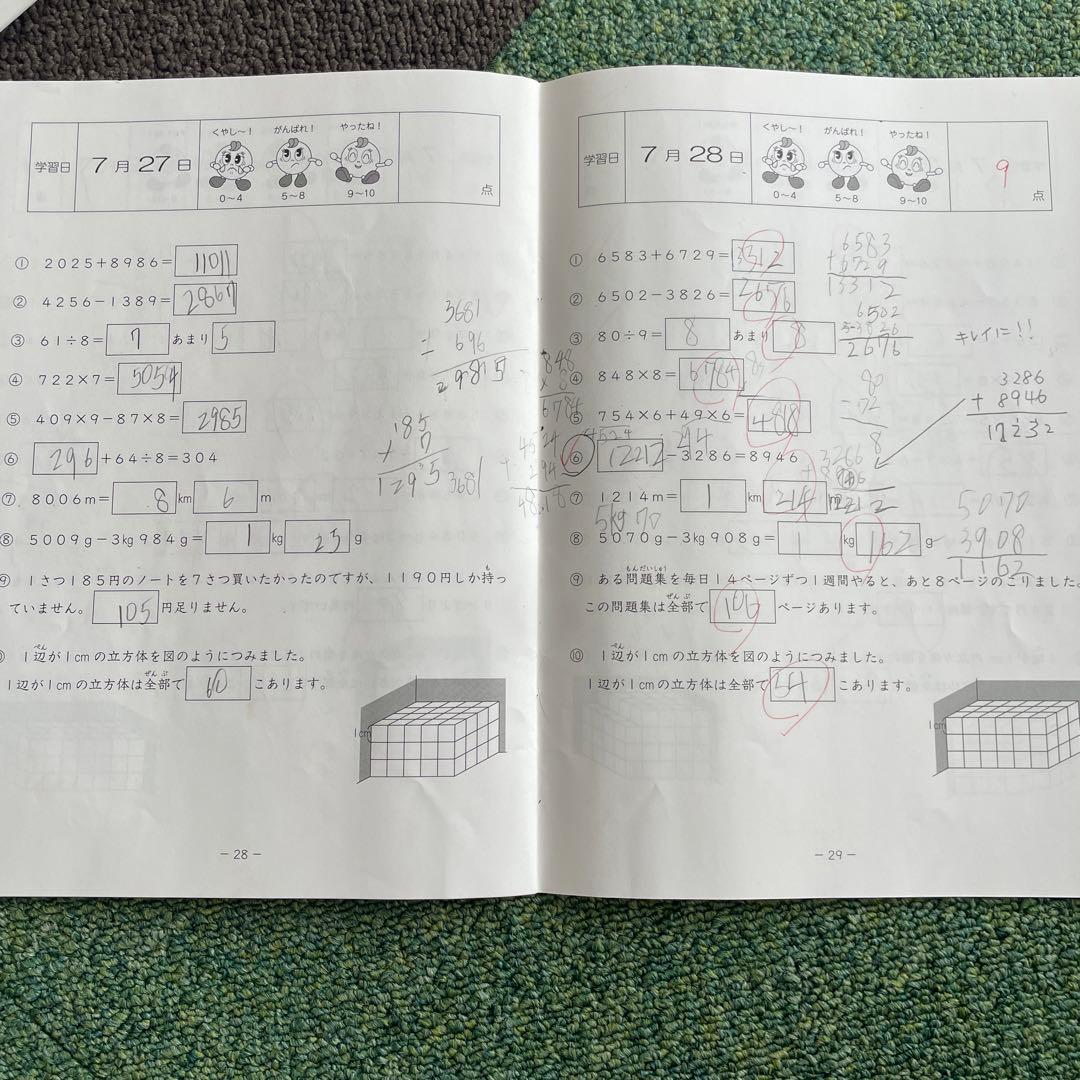 学習日
7月27日
くやし～！
がんばれ！
やったね！
0～4
5～8
9～10
点
① 2025+8986= 11011
② 4256-1389= 2867
③ 61÷8= 7 あまり 5
④ 722×7= 5054
⑤ 409×9-87×8= 2985
⑥ 296 +64÷8=304
⑦ 8006m= 8 km 6 m
⑧ 5009g-3kg984g= 1 kg 25 g
⑨ 1さつ185円のノートを7さつ買いたかったのですが、1190円しか持っ
も
ていません。 105 円足りません。
1辺が1cmの立方体を図のようにつみました。
ぺん
1辺が1cmの立方体は全部で 60 こあります。
ぜんぶ
1cm
3681
- 696
185
× 7
1295
3681
－28－
学習日
7月28日
くやし～！
がんばれ！
やったね！
0～4
5～8
9～10
9点
① 6583+6729= 13312
6583
+6729
13312
② 6502-3826= 2676
6502
-3826
2676
③ 80÷9= 8 あまり 8
キレイに!!
④ 848×8= 6784
848
× 8
6784
80
-72
8
3286
+ 8946
12232
⑤ 754×6+49×6= 4818
4524
294
4524
+ 294
4818
⑥ 12212 -3286=8946
⑦ 1214m= 1 km 214 m
5kg70
⑧ 5070g-3kg908g= 1 kg 162 g
5070
3908
1162
⑨ ある問題集を毎日14ページずつ1週間やると、あと8ページのこりました。
もんだいしゅう
この問題集は全部で 106 ページあります。
ぜんぶ
⑩ 1辺が1cmの立方体を図のようにつみました。
ぺん
1辺が1cmの立方体は全部で 54 こあります。
ぜんぶ
1cm
－29－